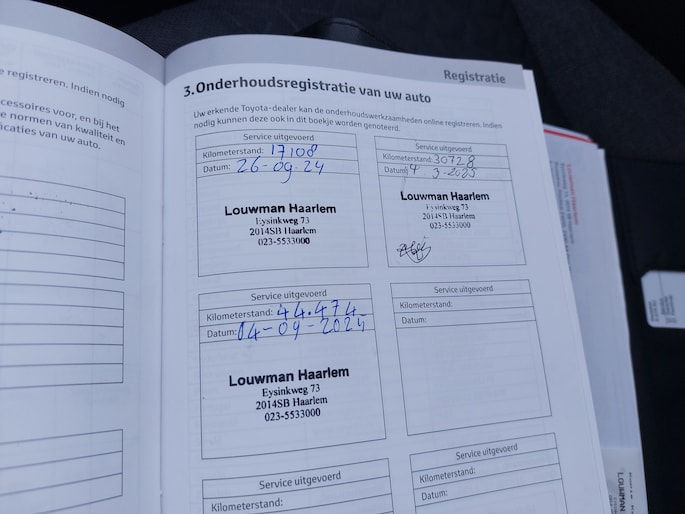 e registreren. Indien nodig
cessoires voor, en bij het
e normen van kwaliteit en
icaties van uw auto.
Registratie
3.Onderhoudsregistratie van uw auto
Uw erkende Toyota-dealer kan de onderhoudswerkzaamheden online registreren. Indien
nodig kunnen deze ook in dit boekje worden genoteerd.
Service uitgevoerd
Kilometerstand: 17108
Datum: 26-09-24
Louwman Haarlem
Eysinkweg 73
2014SB Haarlem
023-5533000
Service uitgevoerd
Kilometerstand: 30728
Datum: 4 3-2025
Louwman Haarlem
Eysinkweg 73
2014SB Haarlem
023-5533000
Service uitgevoerd
Kilometerstand: 44.474
Datum: 04-09-2025
Louwman Haarlem
Eysinkweg 73
2014SB Haarlem
023-5533000
Service uitgevoerd
Kilometerstand:
Datum:
Service uitgevoerd
Kilometerstand:
Service uitgevoerd
Kilometerstand:
Datum:
Louwman Haarlem
LOUWMAN